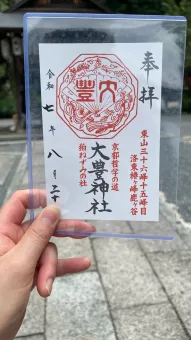 奉拝
東山三十六峰十五峰目
洛東椿ヶ峰鹿ヶ谷
大豊
大豊神社
京都哲学の道
狛ねずみの社
令和七年八月三十